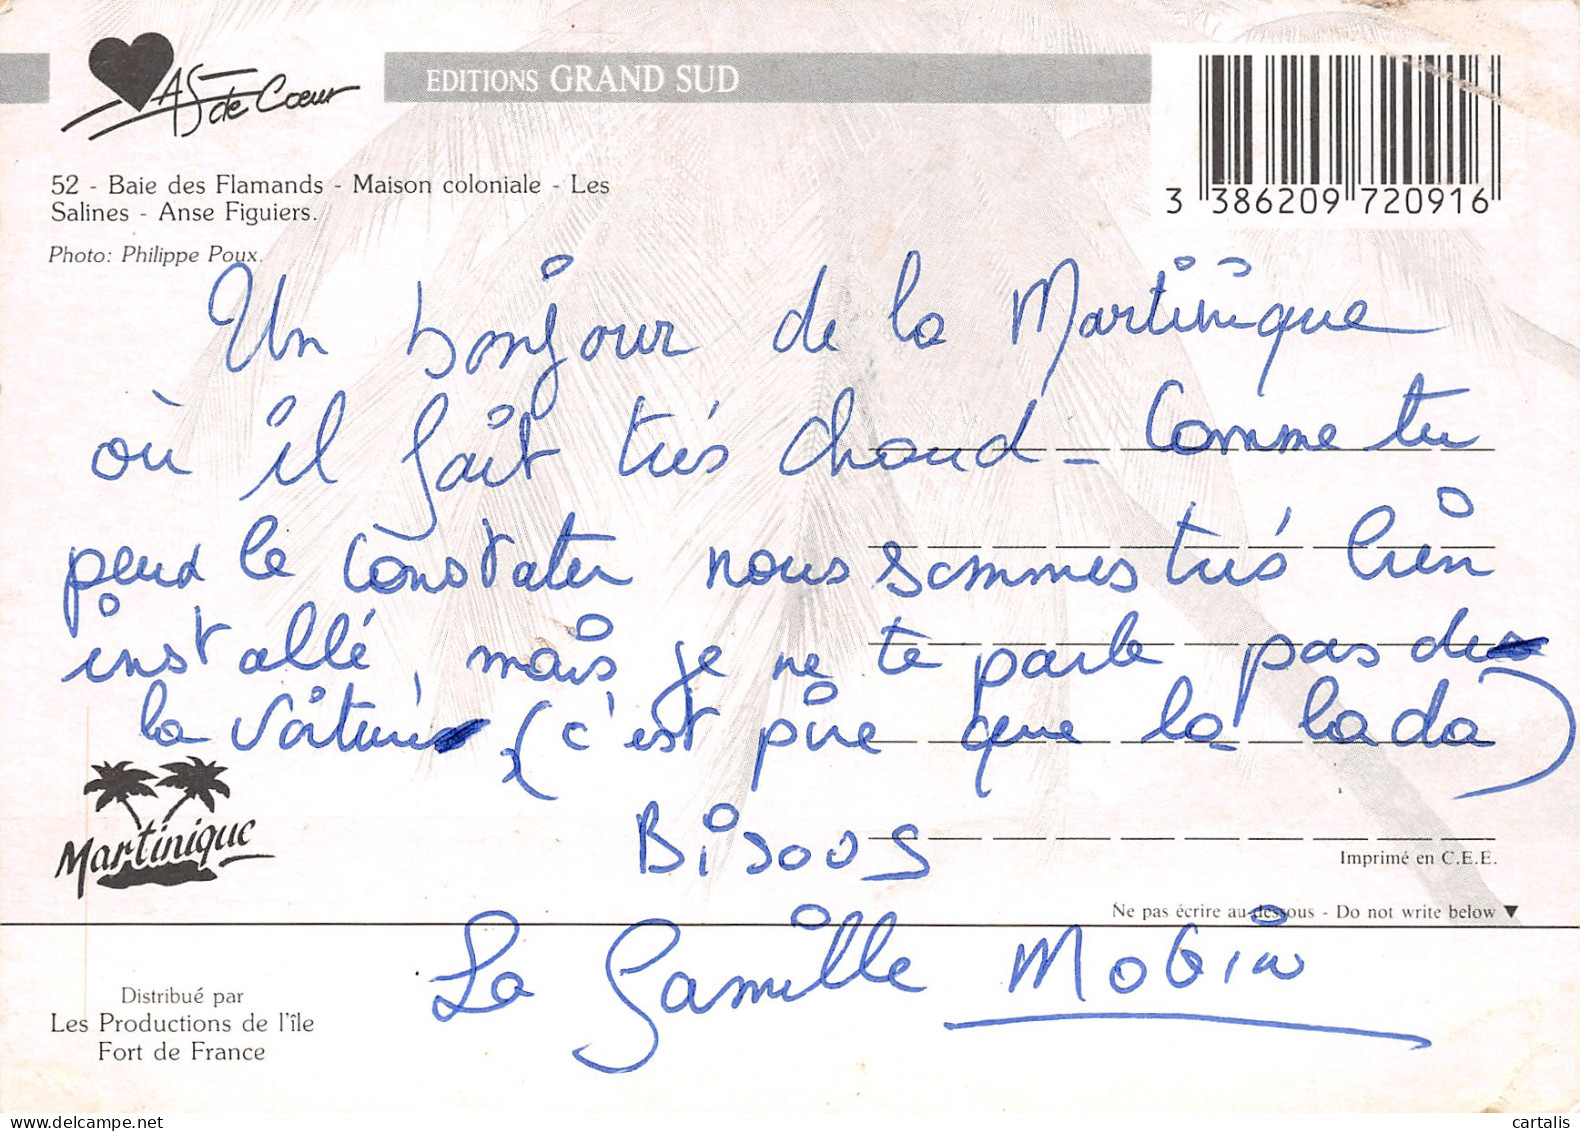 As de Cœur
EDITIONS GRAND SUD
52 - Baie des Flamands - Maison coloniale - Les
Salines - Anse Figuiers.
Photo: Philippe Poux.
3 386209 720916
Un bonjour de la Martinique
où il fait très chaud - Comme tu
peux le constater nous sommes très bien
installé, mais je ne te parle pas de
la voiture, (c'est pire que la lada)
Bisous
Martinique
Imprimé en C.E.E.
Ne pas écrire au-dessous - Do not write below ▼
La famille Mobin
Distribué par
Les Productions de l'île
Fort de France
cartalis